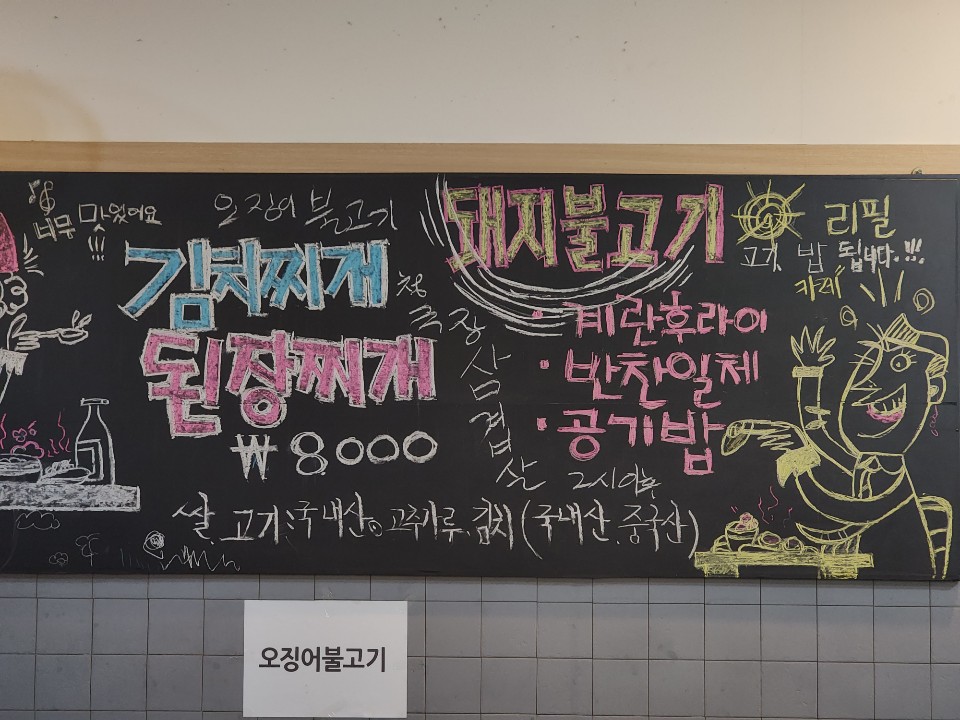 너무 맛있어요
오징어 불고기
김치찌개
된장찌개
₩ 8.000
청국장
삼겹살
2시이후
돼지불고기
리필
고기, 밥 됩니다.!!!
카레
· 계란후라이
· 반찬일체
· 공기밥
쌀, 고기:국내산. 고추가루, 김치 (국내산, 중국산)
오징어불고기